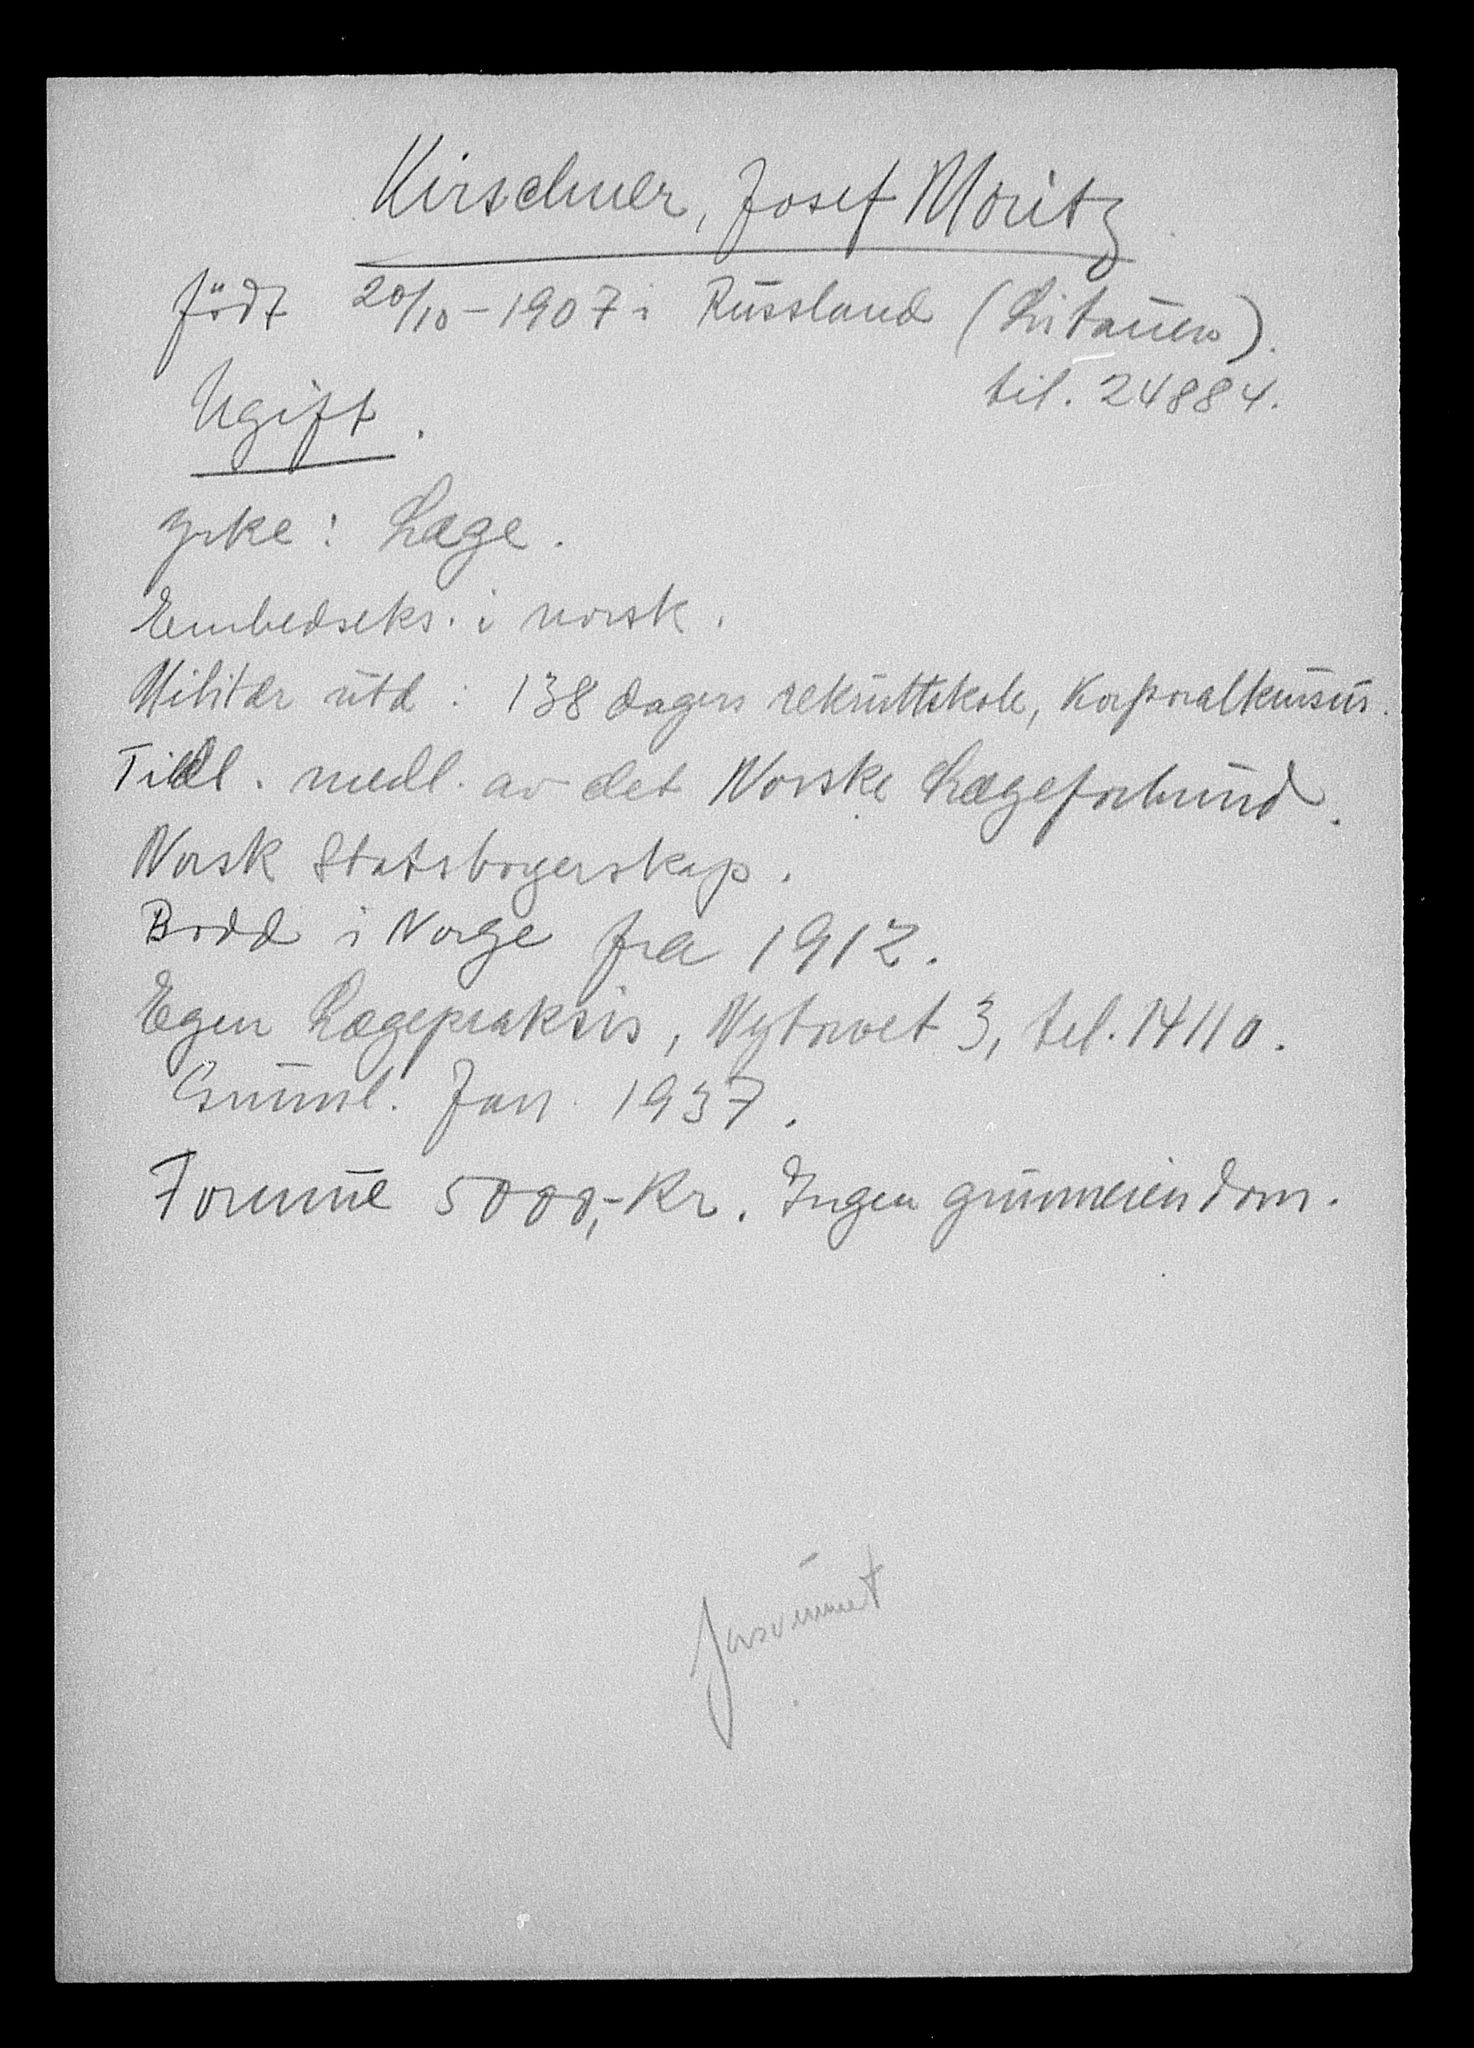 Kirschner, Josef Moritz
födt 20/10-1907 i Russland (Litauen).
tel. 24884.
Ugift.
Yrke: Læge.
Embedseks. i norsk.
Militær utd: 138 dagers rekruttskole, Korporalkursus.
Tidl. medl. av det Norske Lægeforbund.
Norsk Statsborgerskap.
Bodd i Norge fra 1912.
Egen Lægepraksis, Nytorvet 3, tel. 14110.
Grunnl. Jan. 1937.
Formue 5000,- Kr. Ingen grunneiendom.
forsvunnet